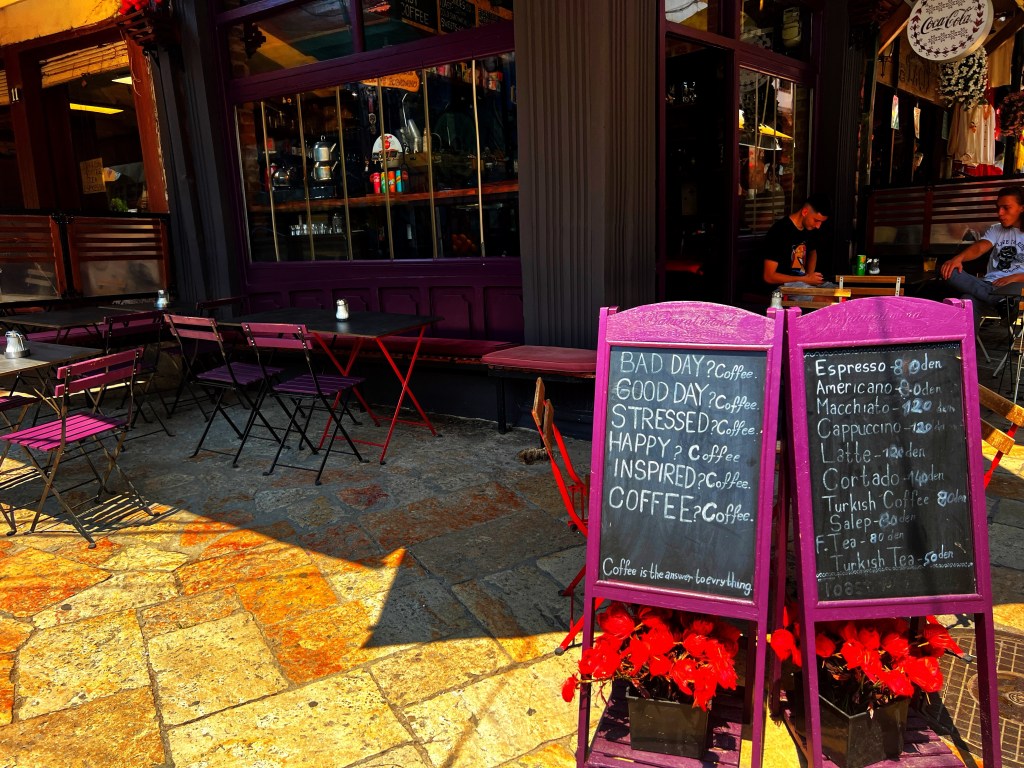 COFFEE
Coca-Cola
BAD DAY? Coffee.
GOOD DAY? Coffee.
STRESSED? Coffee.
HAPPY? Coffee
INSPIRED? Coffee.
COFFEE? Coffee.
Coffee is the answer to everything.
Espresso - 80 den
Americano - den
Macchiato - 120 den
Cappuccino - 120 den
Latte - 120 den
Cortado - 140 den
Turkish Coffee 80 den
Salep - den
F. Tea - 80 den
Turkish Tea - 50 den